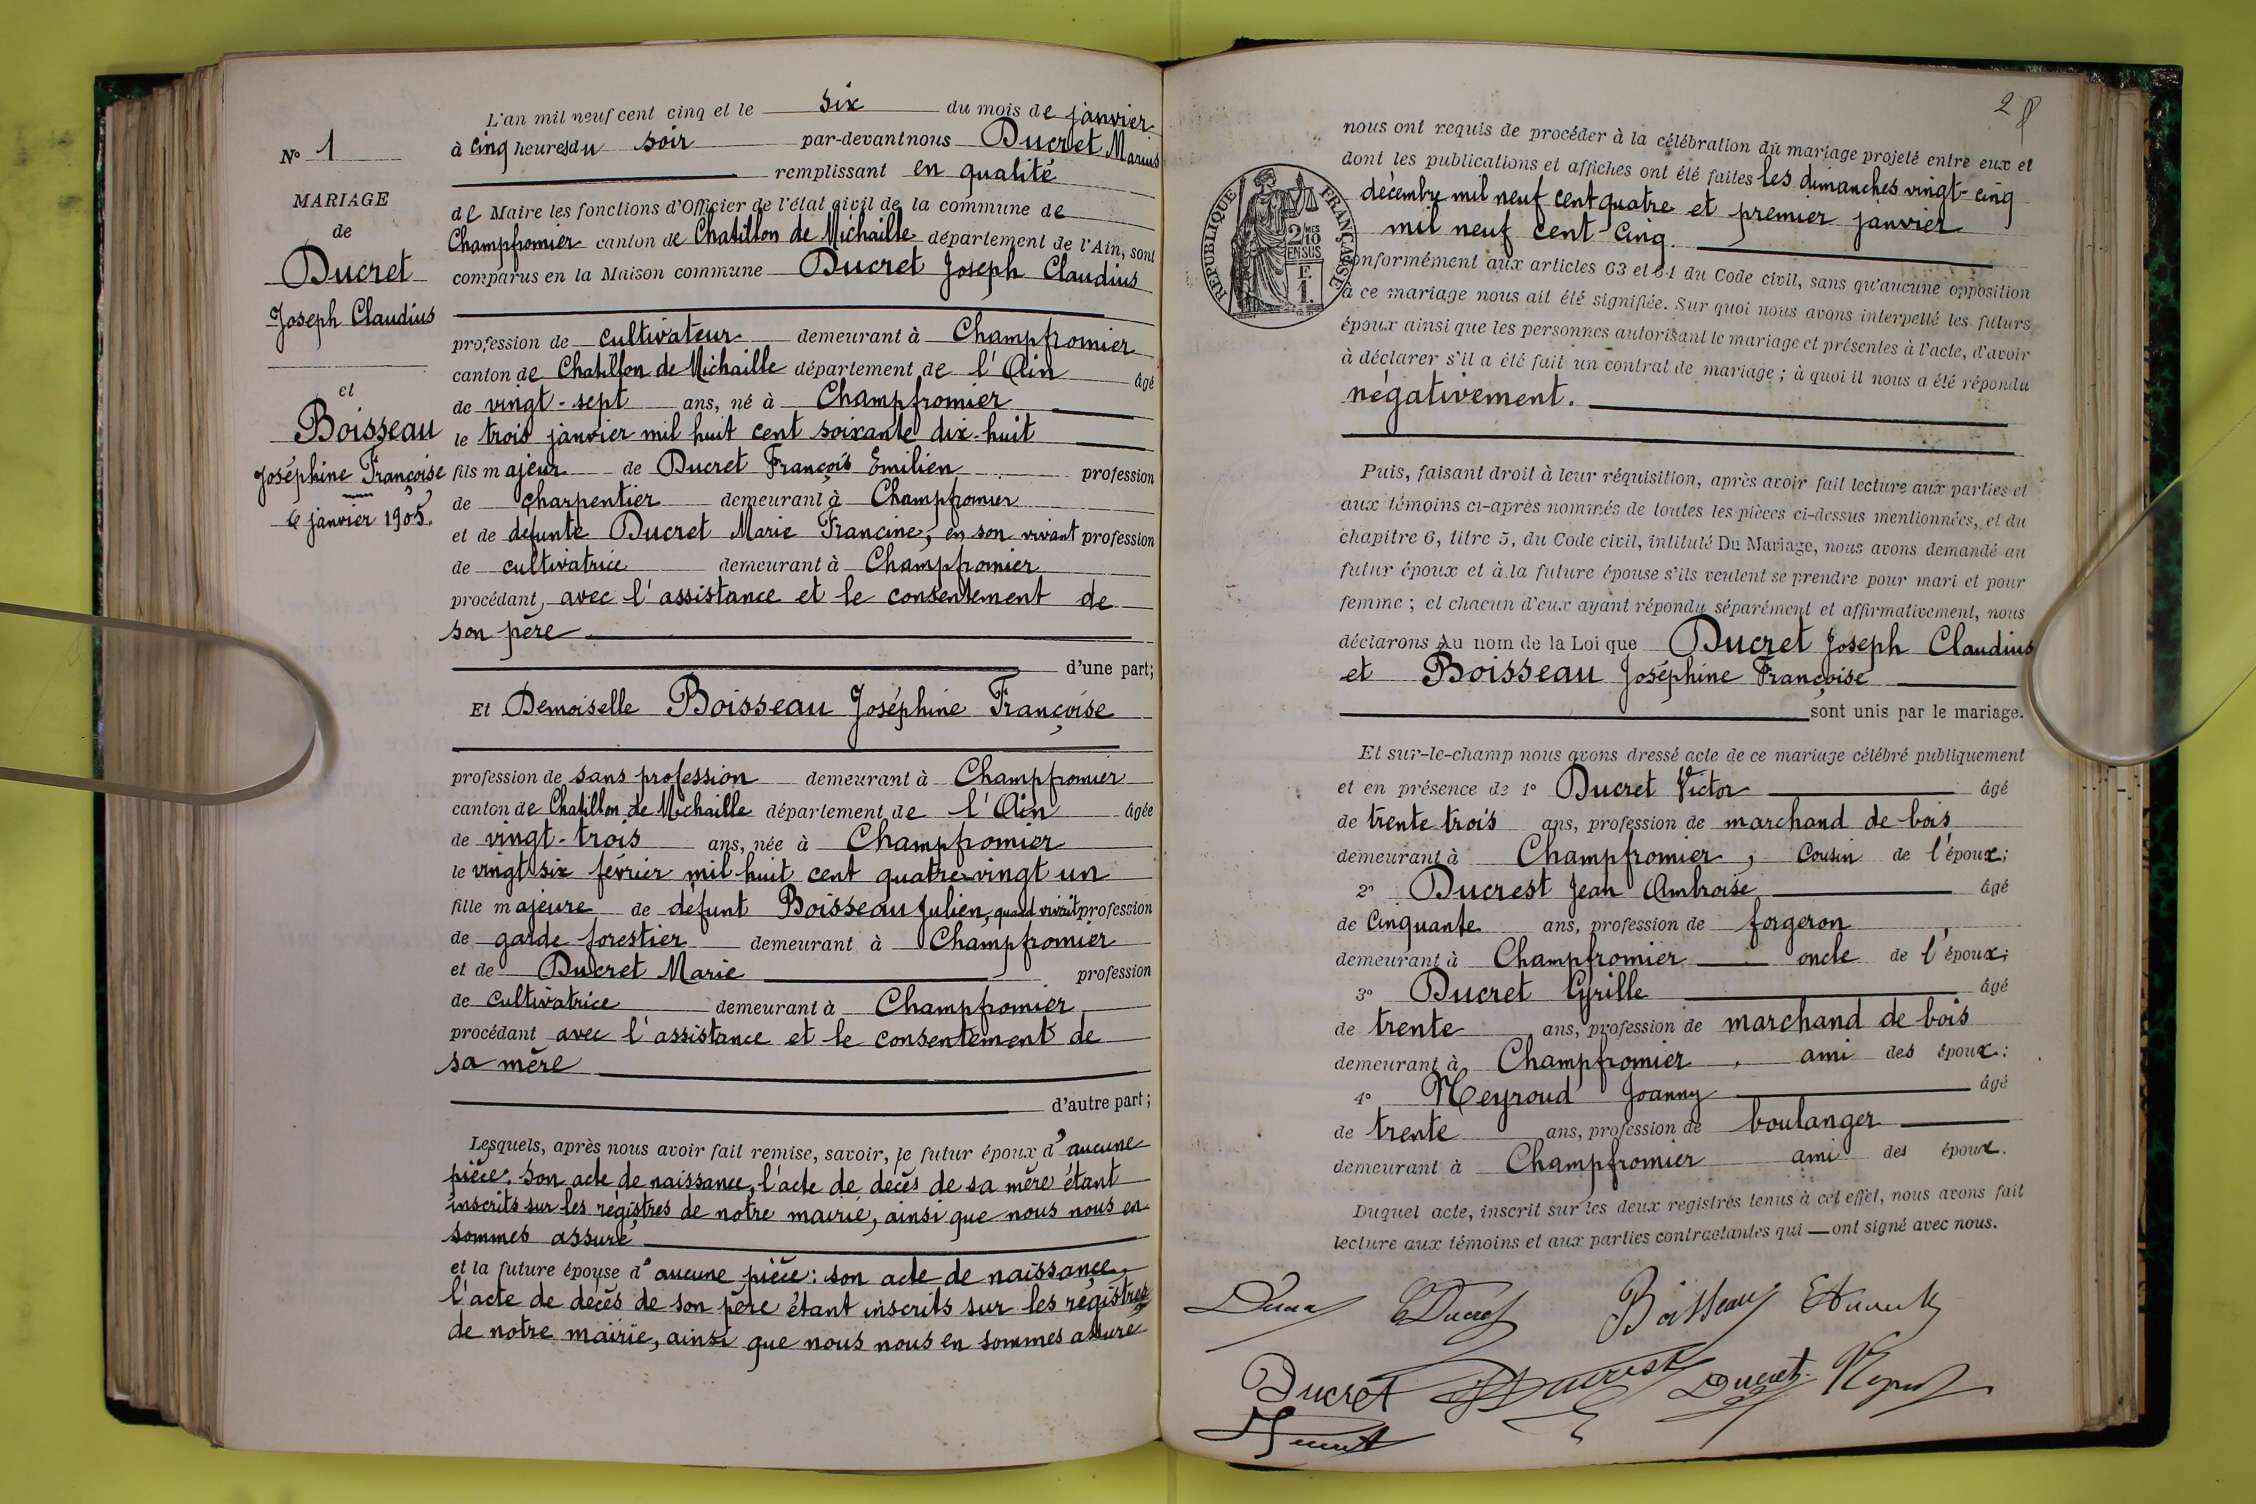 N° 1
MARIAGE
de
Ducret
Joseph Claudius
et
Boisseau
Joséphine Françoise
6 janvier 1905.
L'an mil neuf cent cinq et le six du mois de janvier
à cinq heures du soir par-devant nous Ducret Marius
remplissant en qualité
de Maire les fonctions d'Officier de l'état civil de la commune de
Champfromier canton de Chatillon de Michaille département de l'Ain, sont
comparus en la Maison commune Ducret Joseph Claudius
profession de cultivateur demeurant à Champfromier
canton de Chatillon de Michaille département de l'Ain âgé
de vingt-sept ans, né à Champfromier
le trois janvier mil huit cent soixante dix-huit
fils majeur de Ducret François Emilien profession
de charpentier demeurant à Champfromier
et de défunte Ducret Marie Francine, en son vivant profession
de cultivatrice demeurant à Champfromier
procédant, avec l'assistance et le consentement de
son père
d'une part;
Et Demoiselle Boisseau Joséphine Françoise
profession de sans profession demeurant à Champfromier
canton de Chatillon de Michaille département de l'Ain âgée
de vingt-trois ans, née à Champfromier
le vingt six février mil huit cent quatre-vingt un
fille majeure de défunt Boisseau Julien, quand vivait profession
de garde forestier demeurant à Champfromier
et de Ducret Marie profession
de cultivatrice demeurant à Champfromier
procédant avec l'assistance et le consentement de
sa mère
d'autre part;
Lesquels, après nous avoir fait remise, savoir, le futur époux d'aucune
pièce: son acte de naissance, l'acte de décès de sa mère étant
inscrits sur les régistres de notre mairie, ainsi que nous nous en
sommes assuré
et la future épouse d'aucune pièce: son acte de naissance,
l'acte de décès de son père étant inscrits sur les régistres
de notre mairie, ainsi que nous nous en sommes assuré
28
nous ont requis de procéder à la célébration du mariage projeté entre eux et
dont les publications et affiches ont été faites les dimanches vingt-cinq
décembre mil neuf cent quatre et premier janvier
mil neuf cent cinq.
RÉPUBLIQUE FRANÇAISE
2/MES
10
EN SUS
F.
1.
conformément aux articles 63 et 64 du Code civil, sans qu'aucune opposition
à ce mariage nous ait été signifiée. Sur quoi nous avons interpellé les futurs
époux ainsi que les personnes autorisant le mariage et présentes à l'acte, d'avoir
à déclarer s'il a été fait un contrat de mariage; à quoi il nous a été répondu
négativement.
Puis, faisant droit à leur réquisition, après avoir fait lecture aux parties et
aux témoins ci-après nommés de toutes les pièces ci-dessus mentionnées, et du
chapitre 6, titre 5, du Code civil, intitulé Du Mariage, nous avons demandé au
futur époux et à la future épouse s'ils veulent se prendre pour mari et pour
femme; et chacun d'eux ayant répondu séparément et affirmativement, nous
déclarons Au nom de la Loi que Ducret Joseph Claudius
et Boisseau Joséphine Françoise
sont unis par le mariage.
Et sur-le-champ nous avons dressé acte de ce mariage célébré publiquement
et en présence de 1° Ducret Victor âgé
de trente trois ans, profession de marchand de bois
demeurant à Champfromier, cousin de l'époux;
2° Ducrest Jean Ambroise âgé
de cinquante ans, profession de forgeron
demeurant à Champfromier oncle de l'époux;
3° Ducret Cyrille âgé
de trente ans, profession de marchand de bois
demeurant à Champfromier, ami des époux;
4° Neyroud Joanny âgé
de trente ans, profession de boulanger
demeurant à Champfromier ami des époux.
Duquel acte, inscrit sur les deux registres tenus à cet effet, nous avons fait
lecture aux témoins et aux parties contractantes qui ont signé avec nous.
Ducret Boisseau
Ducret Ducrest Ducret